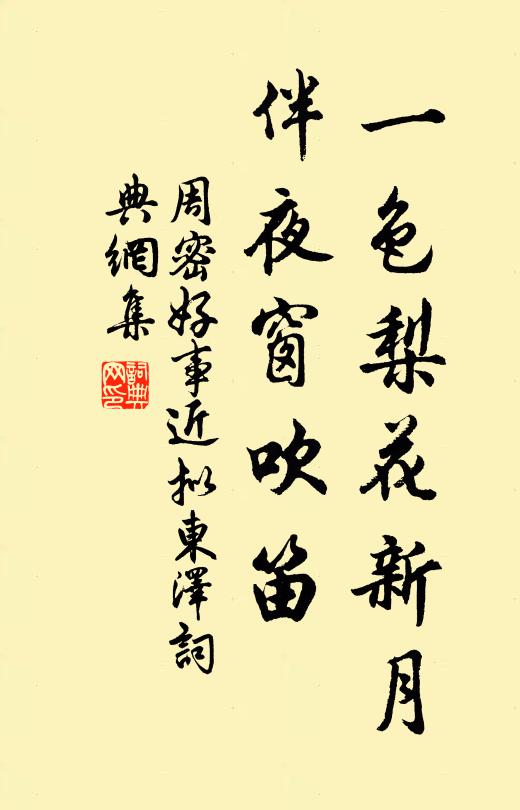 一色梨花新月
伴夜窗吹笛
周密好事近拟東澤詞
典網集
詞典網印